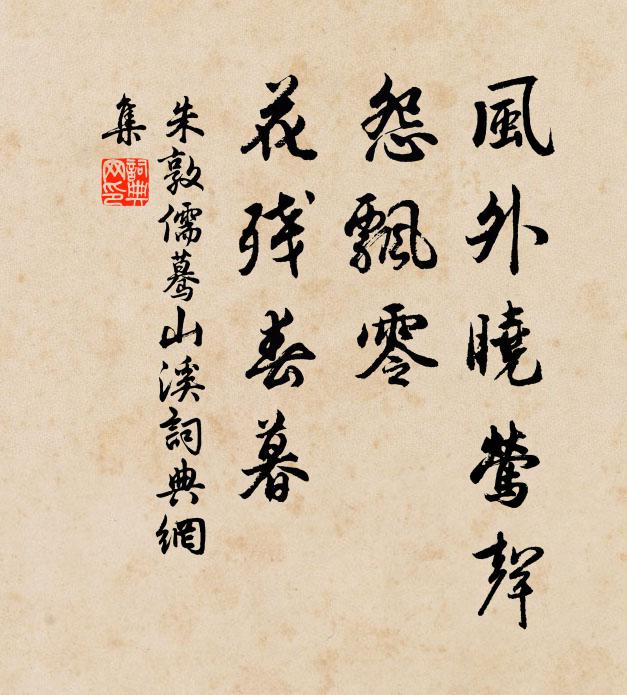 風外曉鶯聲
怨飄零
花殘春暮
朱敦儒驀山溪詞典網
集
詞典
网印